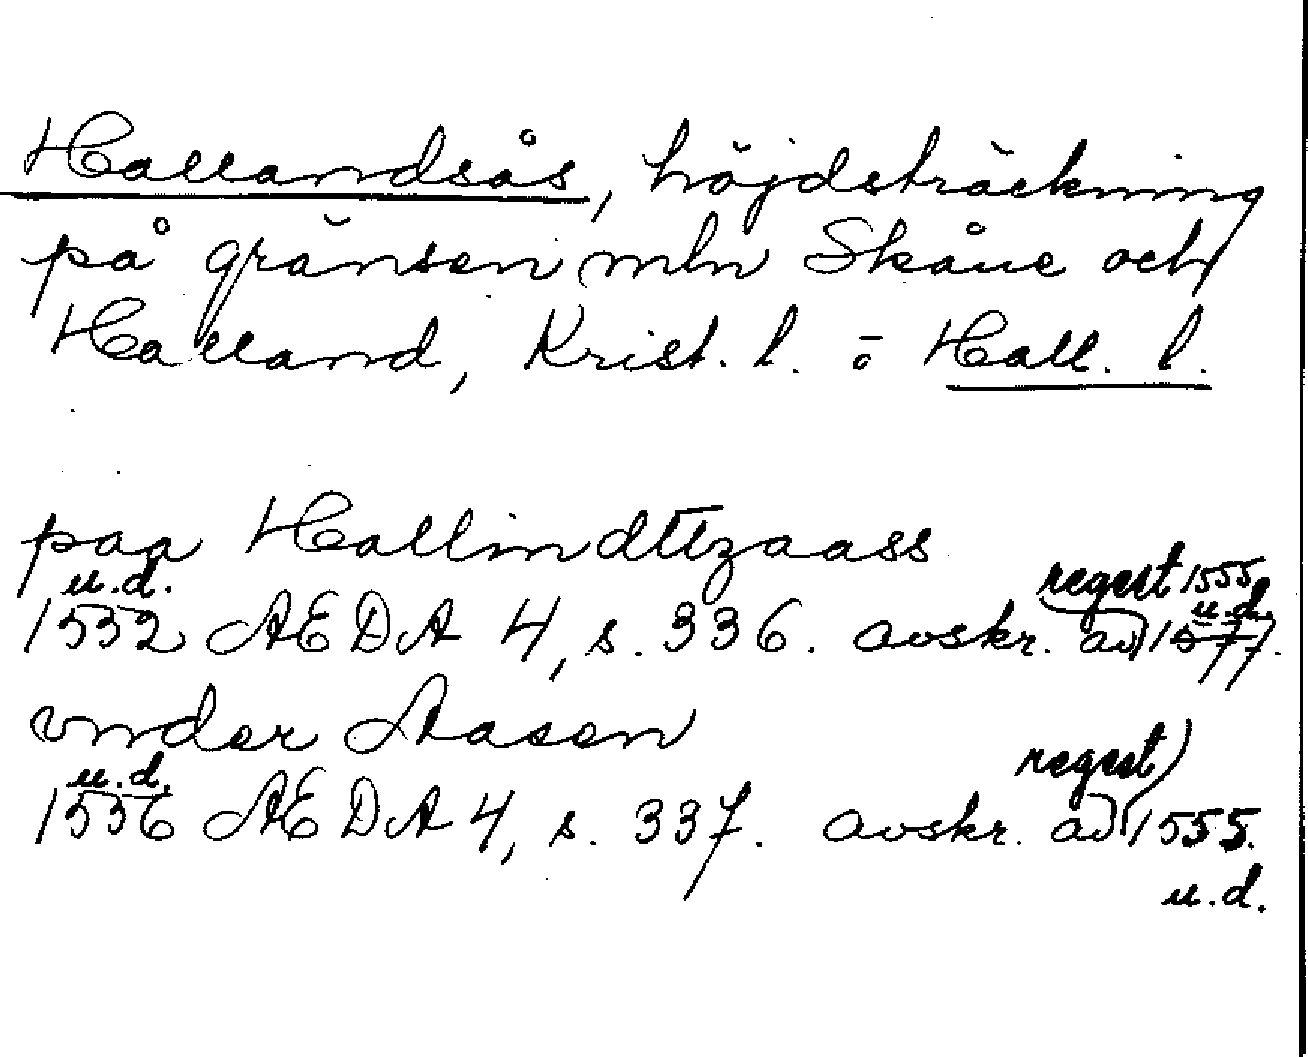 Hallandsås, höjdsträckning
på gränsen mln Skåne och
Halland, Krist. l. o Hall. l.
paa Hallindttzaass
u.d. regest 1555 u.d.
1532 AEDA 4, s. 336. avskr. av 1577.
vnder Aasen
u.d. regest
1536 AEDA 4, s. 337. avskr. av 1555.
u.d.